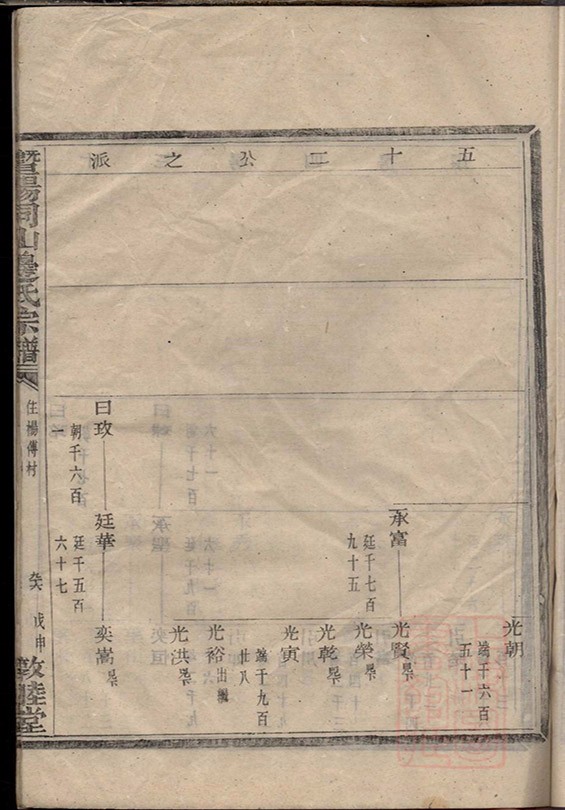 五十二公之派
光朝
端千六百
五十一
承富
廷千七百
九十五
光賢
光榮
光乾
光寅
端千九百
廿八
光裕 出繼
光洪
曰玫
朝千六百
一
廷華
廷千五百
六十七
奕嵩
暨陽同山邊氏宗譜
住楊傅村
戊申
敦睦堂